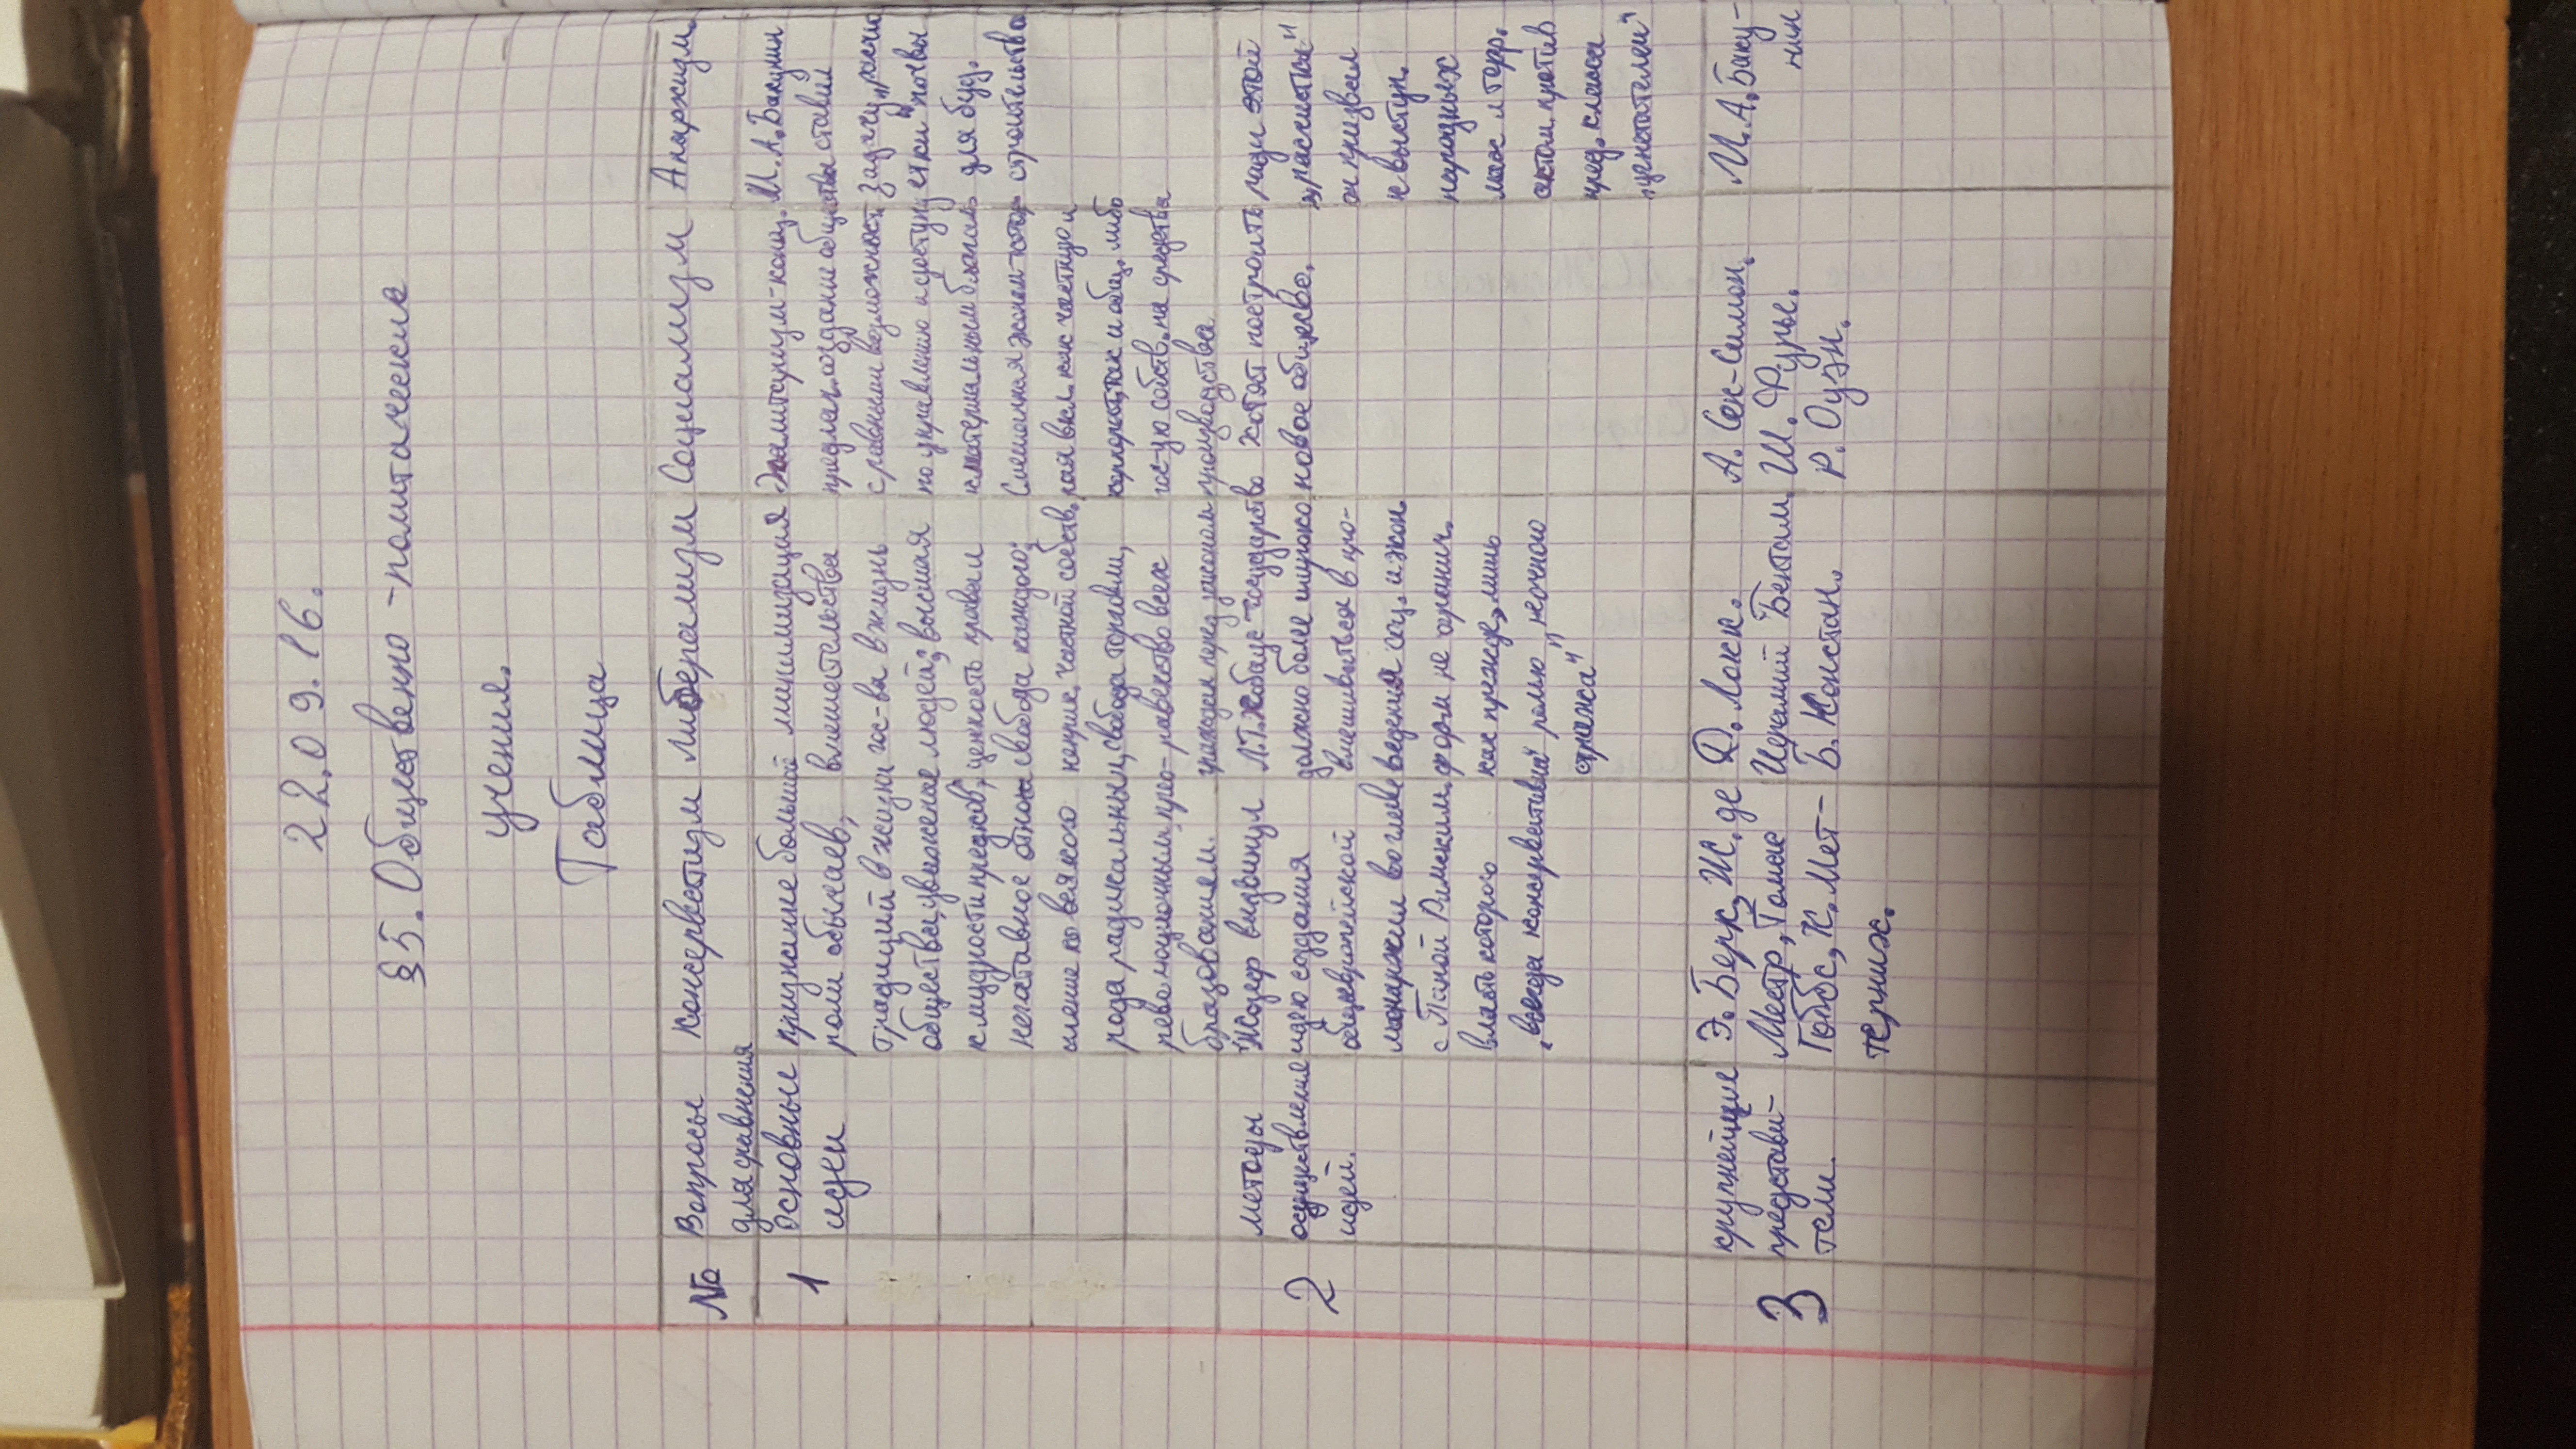 22.09.16.
§5. Общественно-политические
учения.
Таблица
№ Вопросы для сравнения Консерватизм Либерализм Социализм Анархизм.
1 Основные идеи
признание большой
роли обычаев,
традиций в жизни
общества, уважение
к мудрости предков,
негативное отно-
шение ко всякого
рода радикальным,
революционным прео-
бразованием.
минимизация
вмешательства
гос-ва в жизнь
людей; высшая
ценность правам
свобода каждого;
частной собств.
свобода торговли,
равенство всех
граждан перед законом
Эгалитаризм-конц.
предлаг. создание общества
с равными возможностей
по управлению и доступу
к материальным благам
Смешанная эконом-котор
рая вкл. как частную и
так и общ. либо
гос-ую собств. на средства
производства.
М.А.Бакунин
ставил
задачу „расчи
стки" почвы
для буд.
строительства
2 методы
осуществления
идей.
Жозеф выдвинул
идею создания
общеевропейской
монархии во главе
с Папой Римским,
власть которого
„всегда консервативна"
Л.Т.Хобаус-государство
должно более широко
вмешиваться в про-
ведения соц. и экон.
форм не огранич.
как прежде, лишь
ролью "ночного
стража"
хотят построить
новое общество.
ради этой
„расчистки"
он призвал
к выступ.
народных
масс и терр.
актам против
пред. класса
„угнетателей"
3 крупнейшие
представи-
тели.
Э. Берк, Ж. де
Местр, Томас
Гоббс, К. Мет-
терних.
Д. Локк.
Иеремий Бентам
Б. Констан.
А. Сен-Симон.
Ш. Фурье.
Р. Оуэн.
М.А.Баку-
нин